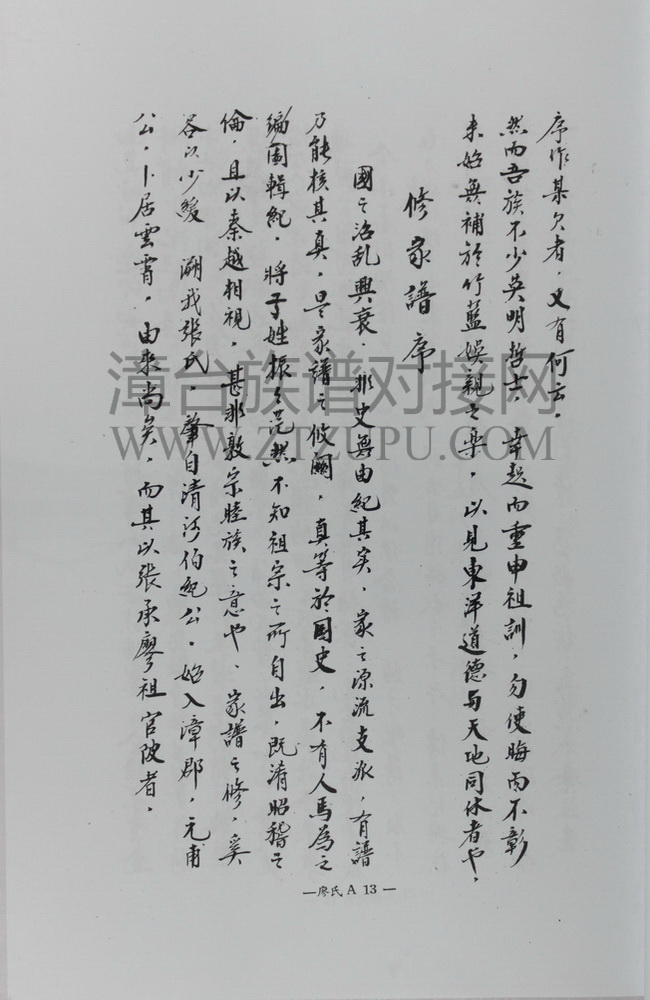 序作某欠者，又有何云。
然而吾族不少英明哲士，幸起而重申祖訓，勿使晦而不彰
未始無補於竹藍娛親之樂，以見東洋道德与天地同休者也，
修家譜序
國之治乱興衰．非史無由紀其实，家之源流支派，有譜
乃能核其真，是家譜之攸關，真等於國史，不有人焉為之
編圖輯紀．將子姓振々茫然不知祖宗之所自出，既淆昭穆之
倫，且以秦越相視，甚非敦宗睦族之意也、家譜之修，奚
容以少緩 溯我張氏，肇自清河伯紀公．始入漳郡，元甫
公，卜居雲霄，由來尚矣，而其以張承廖祖官陂者，
漳台族谱对接网
WWW.ZTZUPU.COM
—廖氏 A 13—